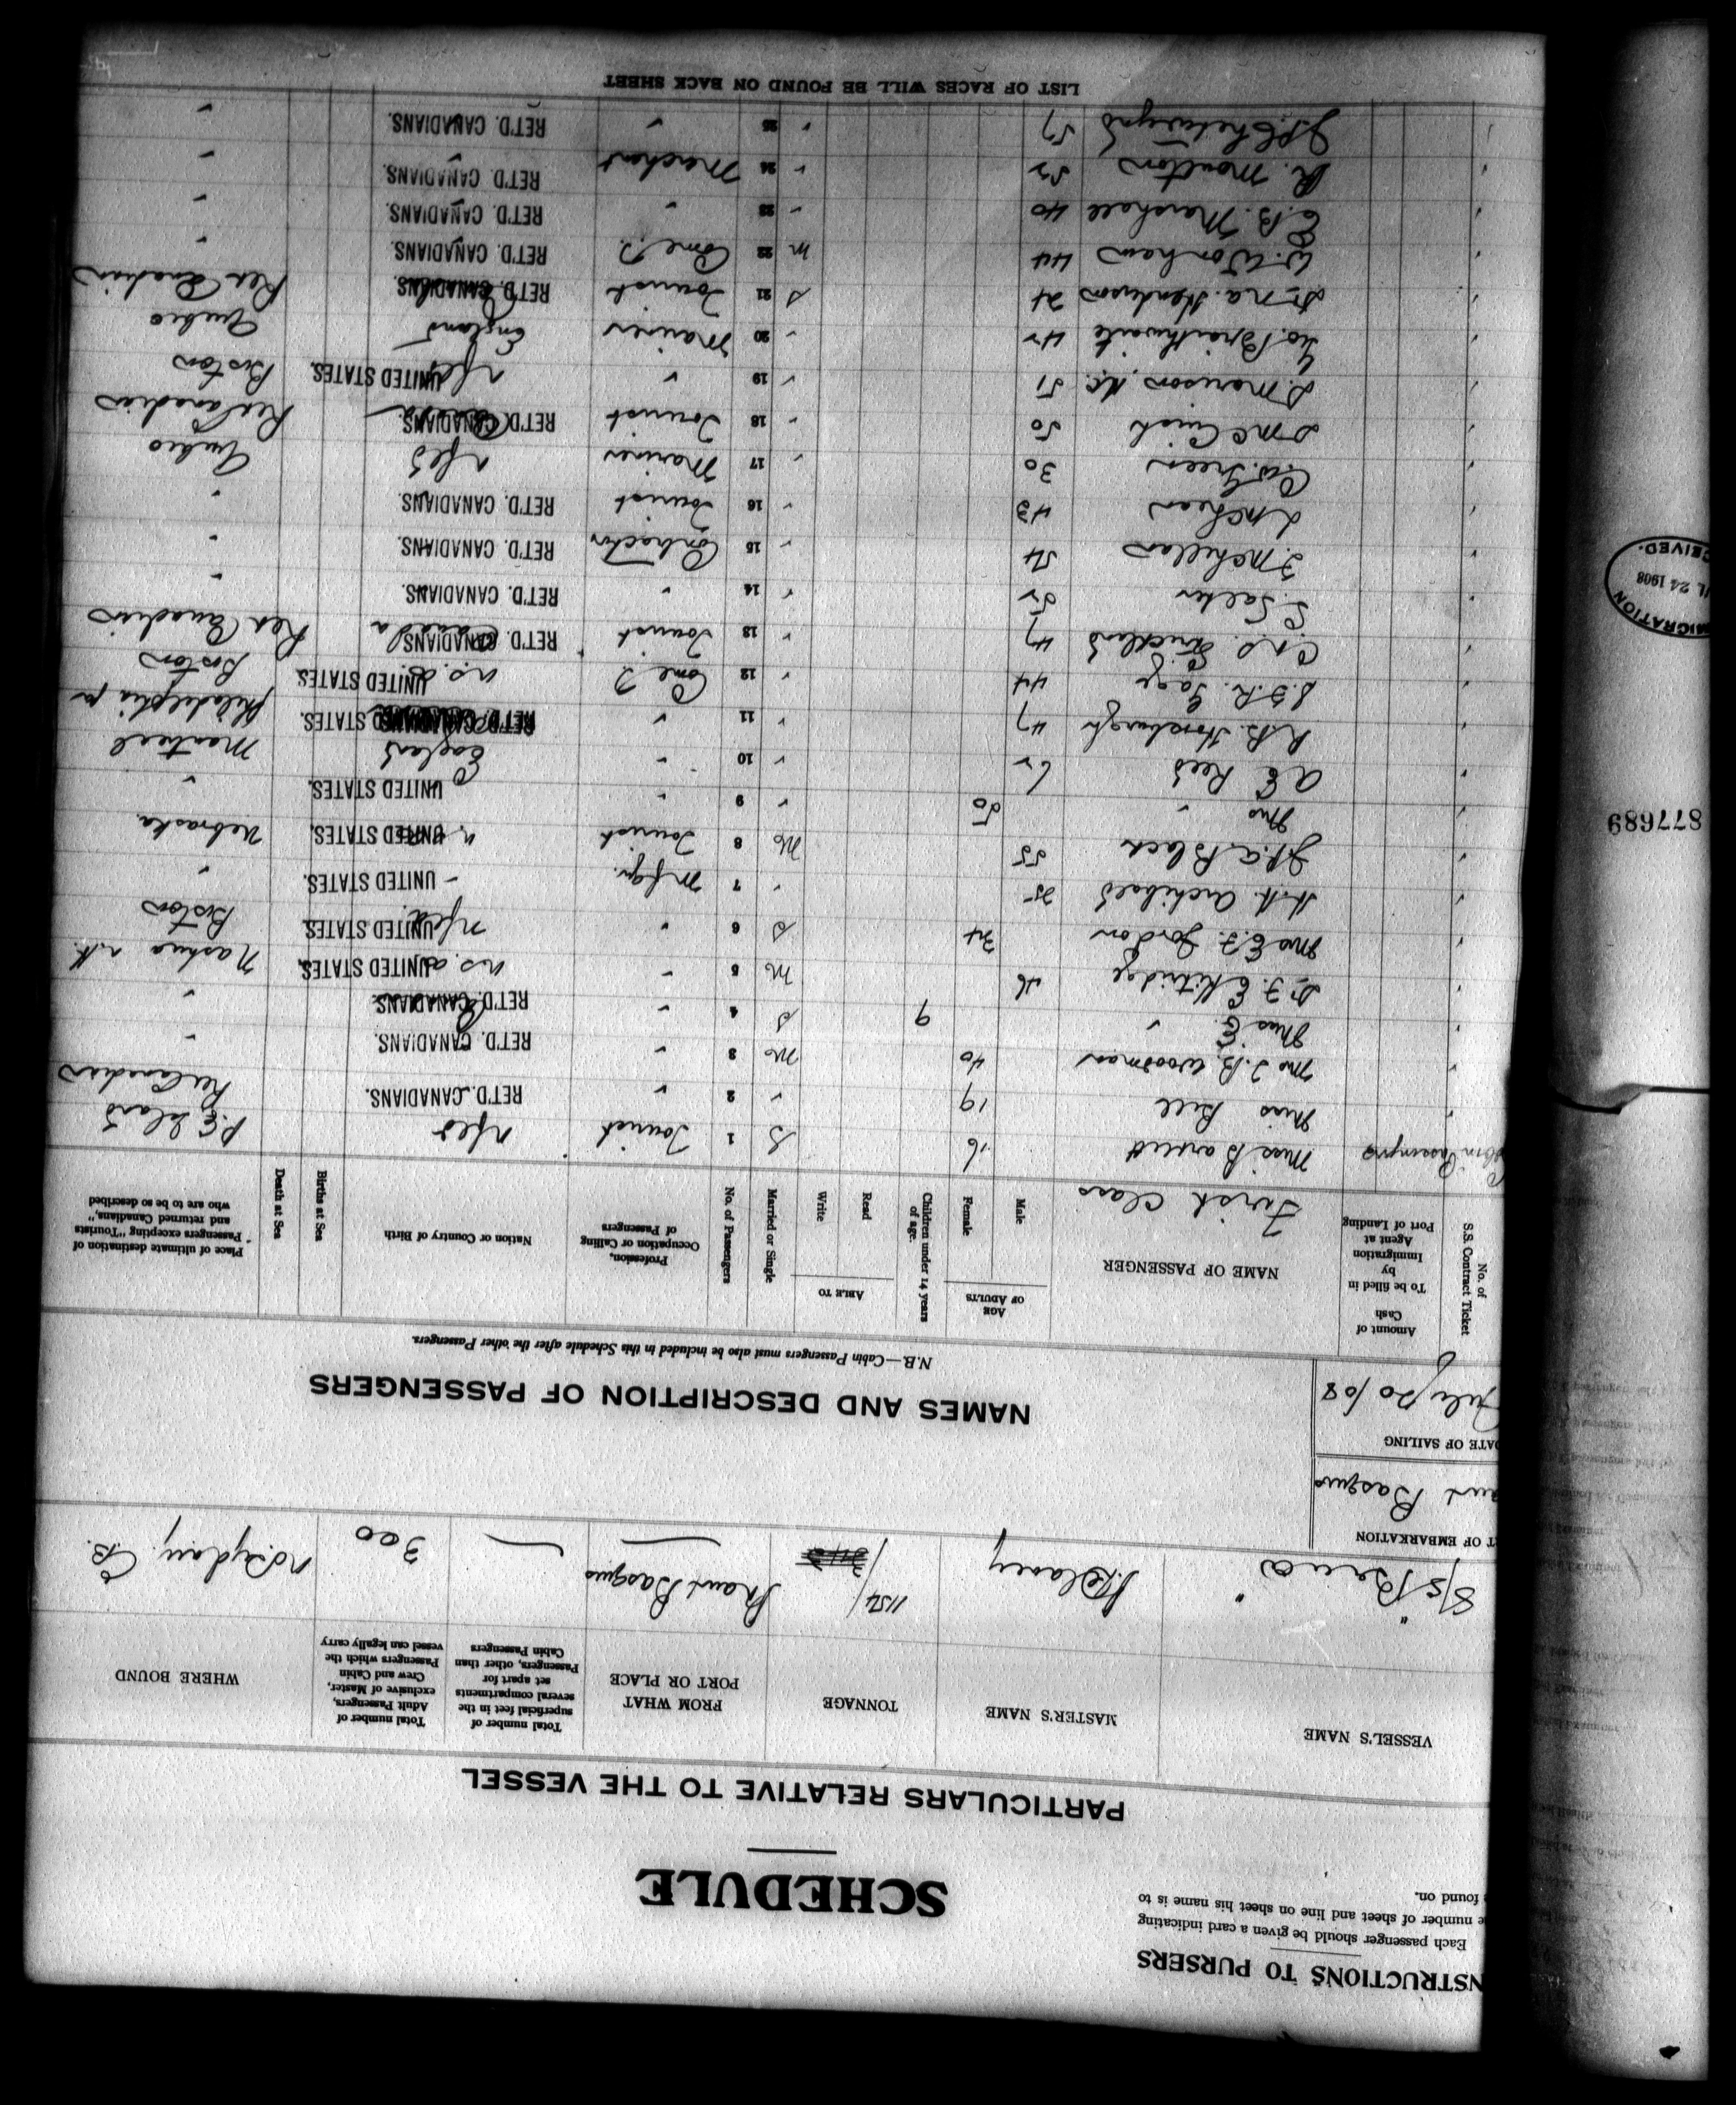 INSTRUCTIONS TO PURSERS
Each passenger should be given a card indicating
number of sheet and line on sheet his name is to
found on.
SCHEDULE
PARTICULARS RELATIVE TO THE VESSEL
VESSEL'S NAME MASTER'S NAME TONNAGE FROM WHAT PORT OR PLACE Total number of superficial feet in the several compartments set apart for Passengers, other than Cabin Passengers Total number of Adult Passengers, exclusive of Master, Crew and Cabin Passengers which the vessel can legally carry WHERE BOUND
S/S "Bruce" Delaney 1154 Port Basques — 300 No. Sydney. C.B.
T OF EMBARKATION
Basques
DATE OF SAILING
July 20/08
NAMES AND DESCRIPTION OF PASSENGERS
N.B.—Cabin Passengers must also be included in this Schedule after the other Passengers.
No. of S.S. Contract Ticket Amount of Cash To be filled in by Immigration Agent at Port of Landing NAME OF PASSENGER AGE OF ADULTS Male Female Children under 14 years of age. ABLE TO Read Write Married or Single No. of Passengers Profession, Occupation or Calling of Passengers Nation or Country of Birth Births at Sea Death at Sea Place of ultimate destination of Passengers excepting "Tourists and returned Canadians," who are to be so described
First Class
Cabin Passengers Miss Bartlett 16 S 1 Tourist Nfld P.E. Island
Miss Bell 19 " 2 " RET'D. CANADIANS. Ret Canadian
Mrs J. B. Woodman 40 M 3 " RET'D. CANADIANS. "
Miss E. " 9 S 4 " RET'D. CANADIANS. "
Dr F. E. Kitridge 46 M 5 " U.S.A. UNITED STATES. Nashua N.H.
Mrs E. F. Gordon 34 S 6 " Nfld UNITED STATES. Boston
H. H. Archibald 25 " 7 Mfgr. UNITED STATES. "
J. A. Black 55 M 8 Tourist UNITED STATES. Nebraska
Mrs " 50 " 9 " UNITED STATES. "
A E Reed 62 " 10 " England Montreal
R. B. Horsburgh 47 " 11 " RET'D. CANADIANS. UNITED STATES. Philadelphia Pa
S. F. R. Gage 44 " 12 Com. T. U.S. UNITED STATES. Boston
C. N. S. Strickland 47 " 13 Tourist Canada RET'D. CANADIANS. Ret Canadian
S. Salter 52 " 14 " RET'D. CANADIANS. "
F. McLellan 54 " 15 Contractor RET'D. CANADIANS. "
L McLean 43 " 16 Tourist RET'D. CANADIANS. "
C. W. Green 30 " 17 Mariner Nfld Quebec
D McCuish 50 " 18 Tourist RET'D. CANADIANS. Ret Canadian
D. Morison, K.C. 51 " 19 " Nfld UNITED STATES. Boston
Geo. Braithwaite 42 " 20 Mariner England Quebec
Dr N. A. Henderson 24 S 21 Tourist RET'D. CANADIANS. Ret Canadian
W. Wonham 44 M 22 Com. T. RET'D. CANADIANS. "
E. B. Marshall 40 " 23 " RET'D. CANADIANS. "
R. Moulton 52 " 24 Merchant RET'D. CANADIANS. "
Chetwynd 57 " 25 " RET'D. CANADIANS. "
LIST OF RACES WILL BE FOUND ON BACK SHEET
IMMIGRATION
24 1908
RECEIVED.
877689